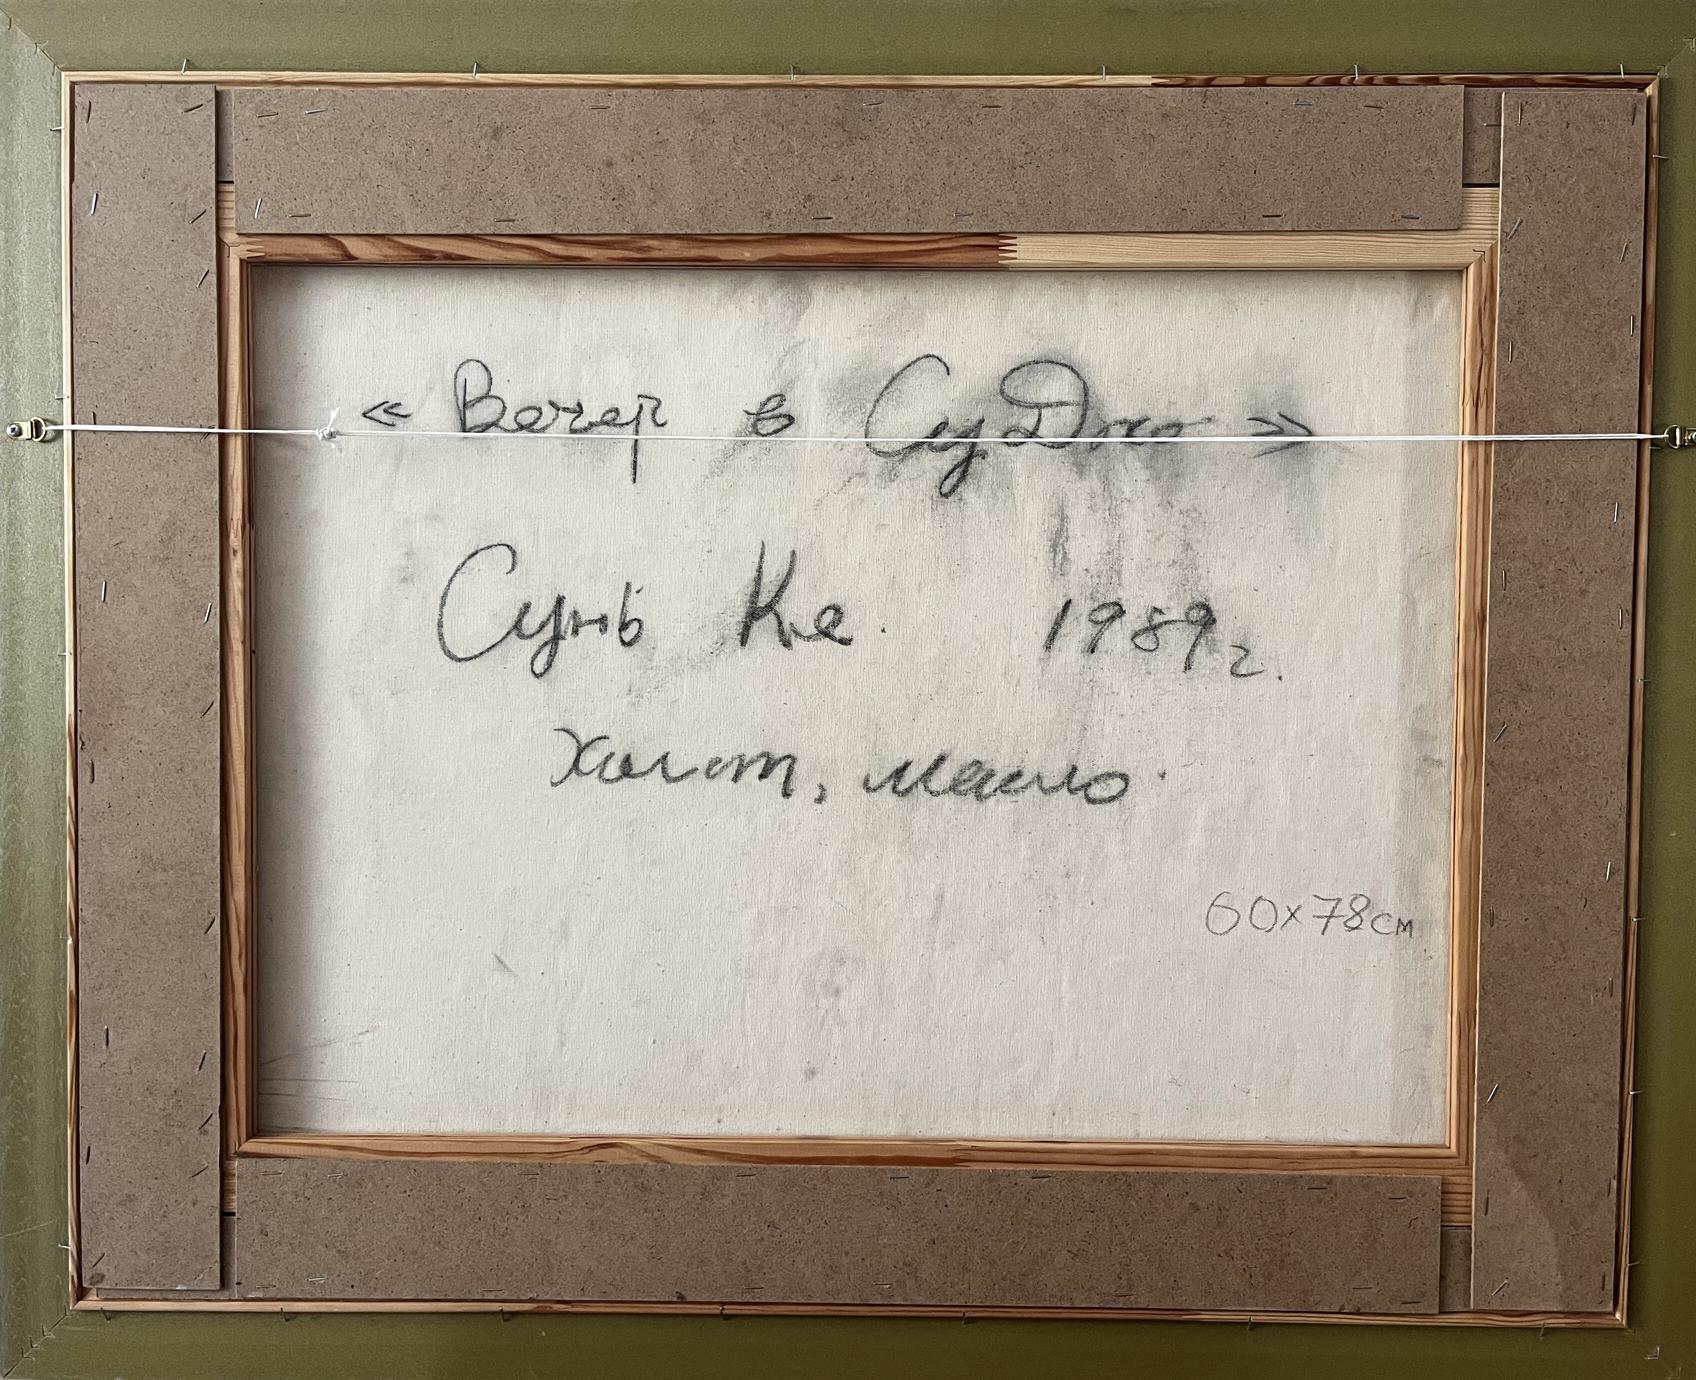 « Вечер в СуДжо »
Сунь Ке. 1989 г.
Холст, масло.
60x78см